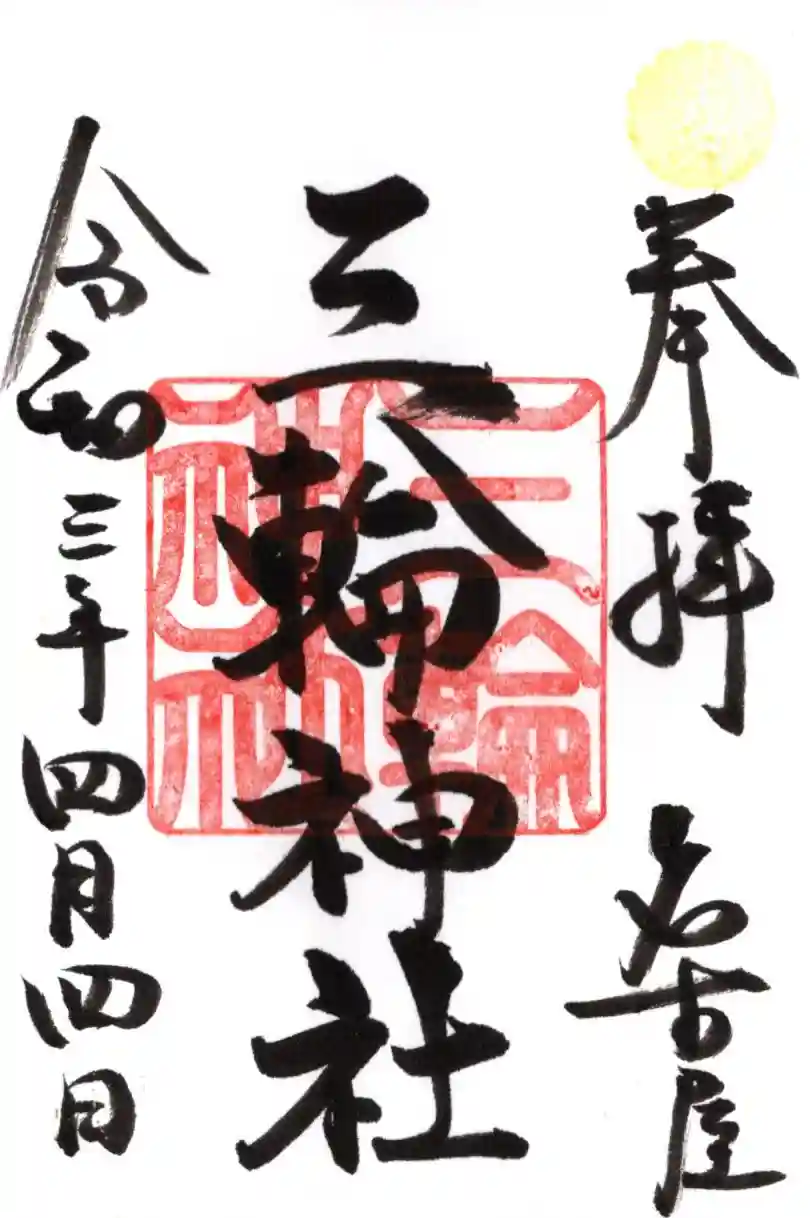 奉拝 名古屋
三輪神社
三輪神社
令和三年四月四日